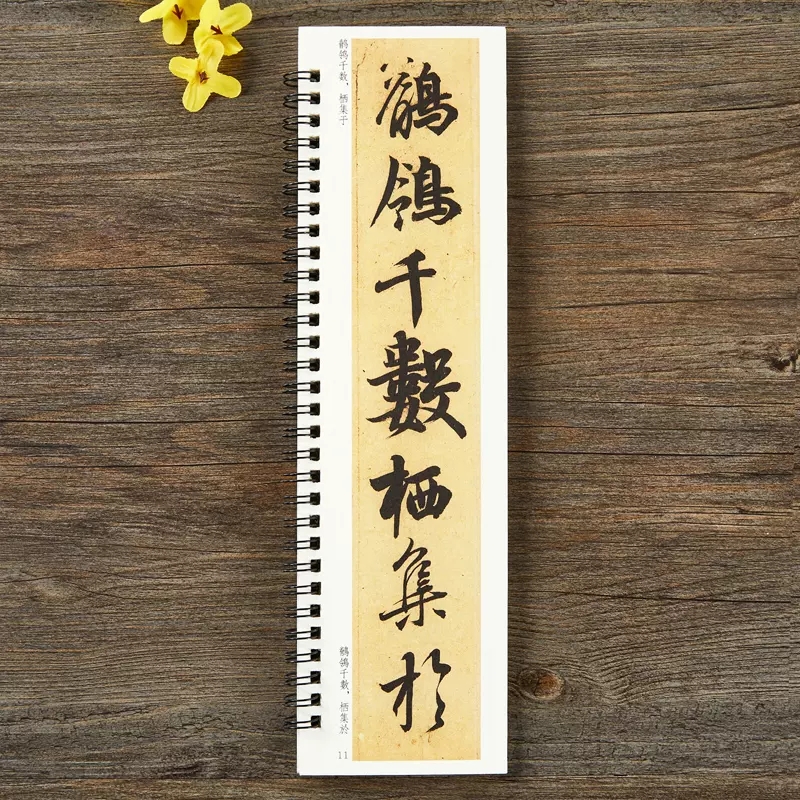 鹡鸰千数，栖集于
鶺鴒千數栖集於
鶺鴒千數，栖集於
11